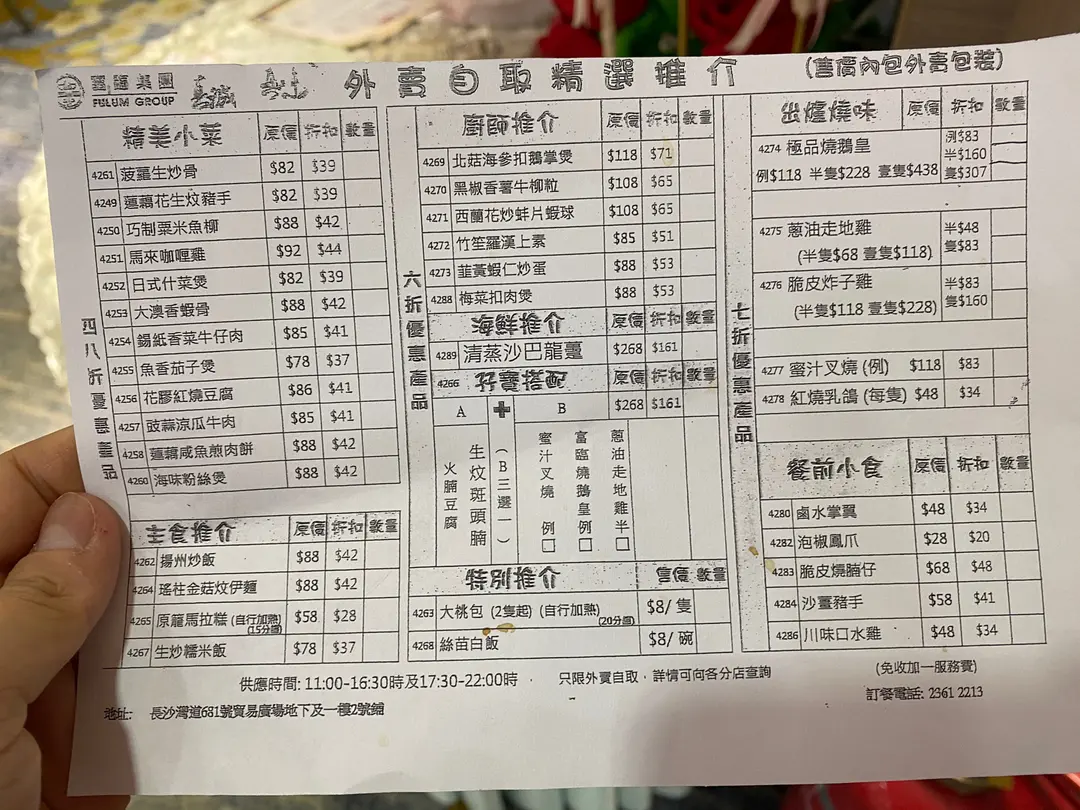 富臨集團
FULUM GROUP
外賣自取精選推介
(售價內包外賣包裝)
四八折優惠產品
精美小菜 原價 折扣 數量
4261 菠蘿生炒骨 $82 $39
4249 蓮藕花生炆豬手 $82 $39
4250 巧制粟米魚柳 $88 $42
4251 馬來咖喱雞 $92 $44
4252 日式什菜煲 $82 $39
4253 大澳香蝦骨 $88 $42
4254 錫紙香菜牛仔肉 $85 $41
4255 魚香茄子煲 $78 $37
4256 花膠紅燒豆腐 $86 $41
4257 豉蒜涼瓜牛肉 $85 $41
4258 蓮藕咸魚煎肉餅 $88 $42
4260 海味粉絲煲 $88 $42
主食推介 原價 折扣 數量
4262 揚州炒飯 $88 $42
4264 瑤柱金菇炆伊麵 $88 $42
4265 原籠馬拉糕 (自行加熱) (15分鐘) $58 $28
4267 生炒糯米飯 $78 $37
六折優惠產品
廚師推介 原價 折扣 數量
4269 北菇海參扣鵝掌煲 $118 $71
4270 黑椒香薯牛柳粒 $108 $65
4271 西蘭花炒蚌片蝦球 $108 $65
4272 竹笙羅漢上素 $85 $51
4273 韮黃蝦仁炒蛋 $88 $53
4288 梅菜扣肉煲 $88 $53
海鮮推介 原價 折扣 數量
4289 清蒸沙巴龍躉 $268 $161
4266 孖寶搭配 原價 折扣 數量
A + B $268 $161
火腩豆腐
生炆斑頭腩
(B三選一)
蜜汁叉燒 例 □
富臨燒鵝皇 例 □
蔥油走地雞 半 □
特別推介 售價 數量
4263 大桃包 (2隻起) (自行加熱) (20分鐘) $8/ 隻
4268 絲苗白飯 $8/ 碗
七折優惠產品
出爐燒味 原價 折扣 數量
4274 極品燒鵝皇 例$83
半$160
例$118 半隻$228 壹隻$438 隻$307
4275 蔥油走地雞 半$48
(半隻$68 壹隻$118) 隻$83
4276 脆皮炸子雞 半$83
(半隻$118 壹隻$228) 隻$160
4277 蜜汁叉燒 (例) $118 $83
4278 紅燒乳鴿 (每隻) $48 $34
餐前小食 原價 折扣 數量
4280 鹵水掌翼 $48 $34
4282 泡椒鳳爪 $28 $20
4283 脆皮燒腩仔 $68 $48
4284 沙薑豬手 $58 $41
4286 川味口水雞 $48 $34
供應時間: 11:00-16:30時及17:30-22:00時 . 只限外賣自取，詳情可向各分店查詢
(免收加一服務費)
地址: 長沙灣道681號貿易廣場地下及一樓2號鋪
訂餐電話: 2361 2213